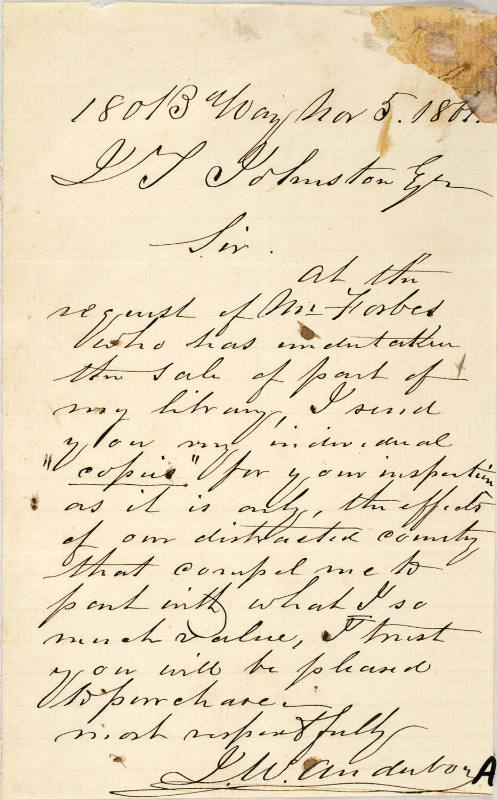 180 B way Nov 5. 1861.
J T Johnston Esqr
Sir.
At the
request of Mr Forbes
who has undertaken
the sale of part of
my library, I send
you my individual
"copies" for your inspection
as it is only, the effects
of our distracted country
that compel me to
part with what I so
much value, I trust
you will be pleased
to purchase
most respectfully
J. W. Audubon
A